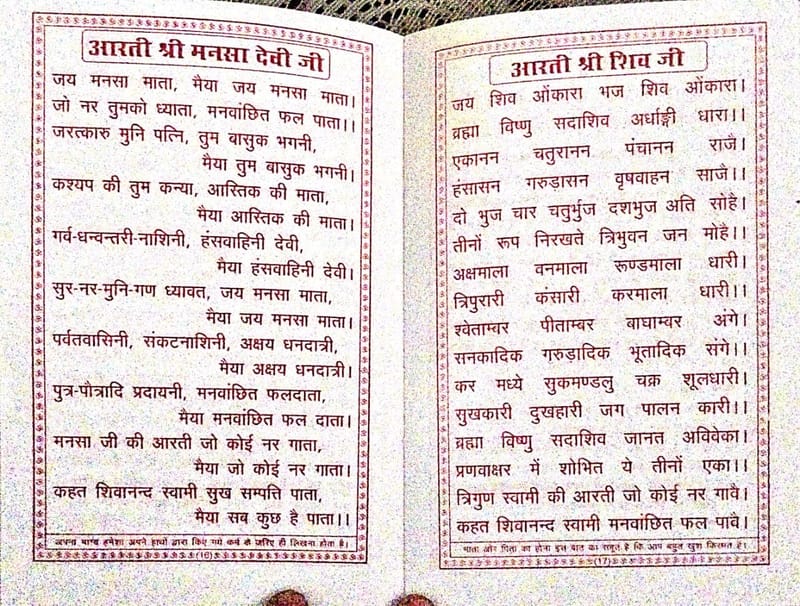 आरती श्री मनसा देवी जी
जय मनसा माता, मैया जय मनसा माता।
जो नर तुमको ध्याता, मनवांछित फल पाता।।
जरत्कारु मुनि पत्नि, तुम बासुक भगनी,
मैया तुम बासुक भगनी।
कश्यप की तुम कन्या, आस्तिक की माता,
मैया आस्तिक की माता।
गर्व-धन्वन्तरी-नाशिनी, हंसवाहिनी देवी,
मैया हंसवाहिनी देवी।
सुर-नर-मुनि-गण ध्यावत, जय मनसा माता,
मैया जय मनसा माता।
पर्वतवासिनी, संकटनाशिनी, अक्षय धनदात्री,
मैया अक्षय धनदात्री।
पुत्र-पौत्रादि प्रदायनी, मनवांछित फलदाता,
मैया मनवांछित फल दाता।
मनसा जी की आरती जो कोई नर गाता,
मैया जो कोई नर गाता।
कहत शिवानन्द स्वामी सुख सम्पति पाता,
मैया सब कुछ है पाता।।
अपना भाग्य हमेशा अपने हाथों द्वारा किए गये कर्म के जरिए ही लिखना होता है।
(16)
आरती श्री शिव जी
जय शिव ओंकारा भज शिव ओंकारा।
ब्रह्मा विष्णु सदाशिव अर्धाङ्गी धारा।।
एकानन चतुरानन पंचानन राजै।
हंसासन गरुडासन वृषवाहन साजै।।
दो भुज चार चतुर्भुज दशभुज अति सोहै।
तीनों रूप निरखते त्रिभुवन जन मोहै।।
अक्षमाला वनमाला रूण्डमाला धारी।
त्रिपुरारी कंसारी करमाला धारी।।
श्वेताम्बर पीताम्बर बाघाम्बर अंगे।
सनकादिक गरुड़ादिक भूतादिक संगे।।
कर मध्ये सुकमण्डलु चक्र शूलधारी।
सुखकारी दुखहारी जग पालन कारी।।
ब्रह्मा विष्णु सदाशिव जानत अविवेका।
प्रणवाक्षर में शोभित ये तीनों एका।।
त्रिगुण स्वामी की आरती जो कोई नर गावै।
कहत शिवानन्द स्वामी मनवांछित फल पावै।
माता और पिता का होना इस बात का सबूत है कि आप बहुत खुश किस्मत है।
(17)